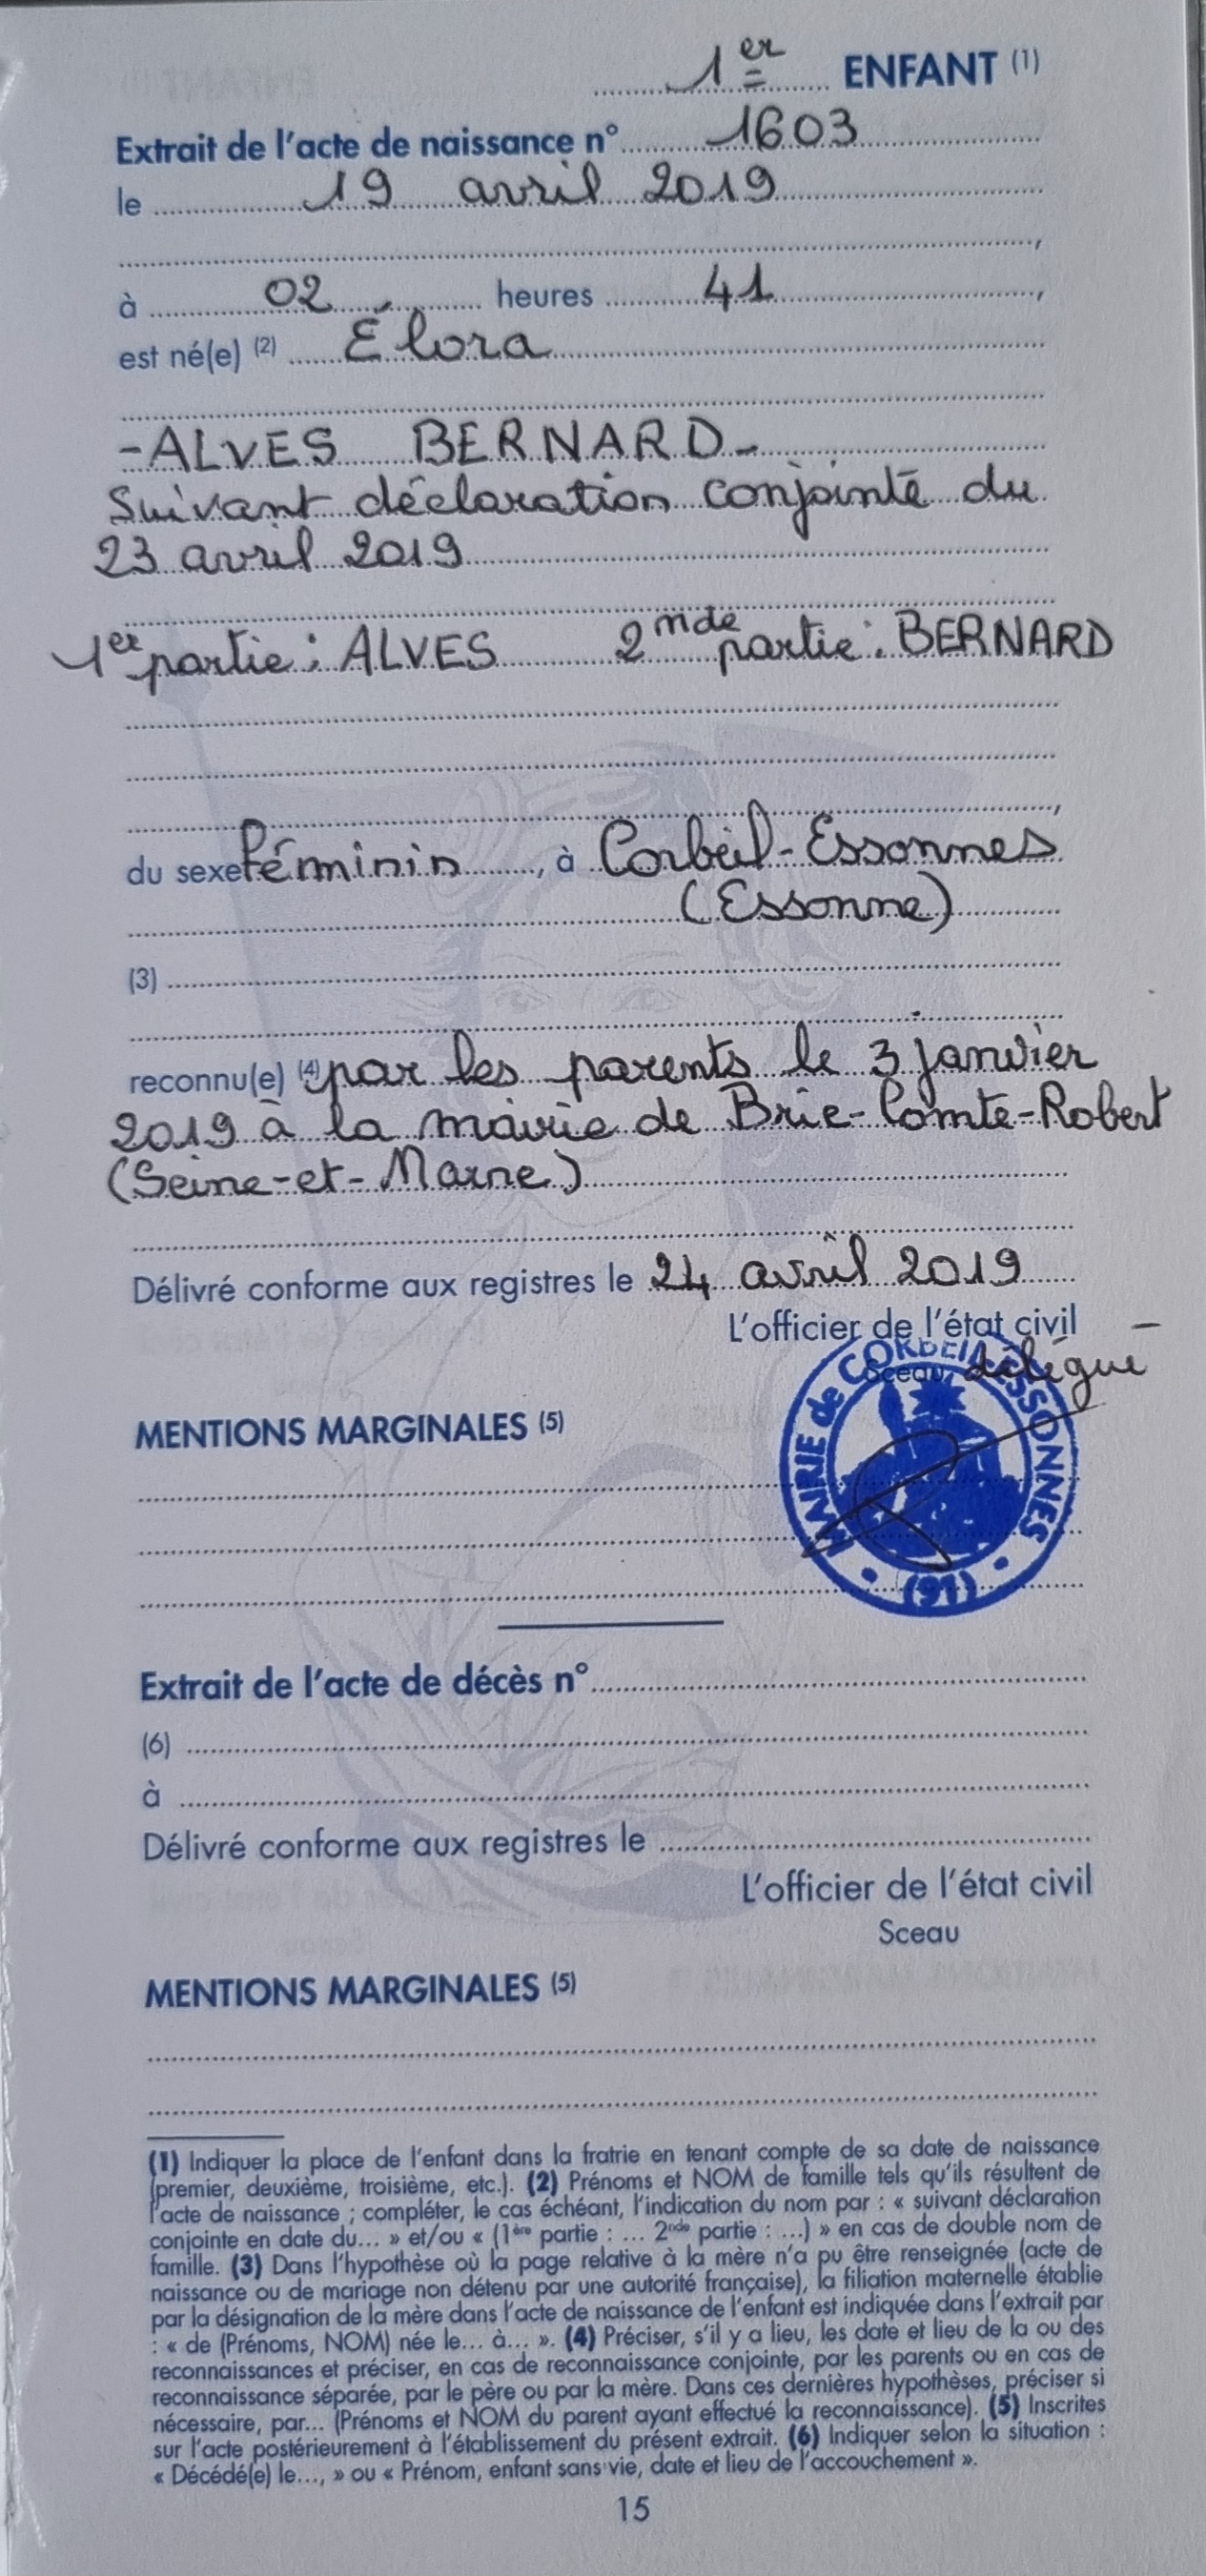 1er ENFANT (1)
Extrait de l'acte de naissance n° 1603
le 19 avril 2019
,
à 02 heures 41 ,
est né(e) (2) Élora
-ALVES BERNARD-
Suivant déclaration conjointe du
23 avril 2019
1er partie : ALVES 2nde partie : BERNARD
,
du sexe féminin , à Corbeil-Essonnes
(Essonne)
(3)
reconnu(e) (4) par les parents le 3 janvier
2019 à la mairie de Brie-Comte-Robert
(Seine-et-Marne)
Délivré conforme aux registres le 24 avril 2019
L'officier de l'état civil
Sceau délégué
MAIRIE de CORBEIL-ESSONNES
(91)
MENTIONS MARGINALES (5)
Extrait de l'acte de décès n°
(6)
à
Délivré conforme aux registres le
L'officier de l'état civil
Sceau
MENTIONS MARGINALES (5)
(1) Indiquer la place de l'enfant dans la fratrie en tenant compte de sa date de naissance
(premier, deuxième, troisième, etc.). (2) Prénoms et NOM de famille tels qu'ils résultent de
l'acte de naissance ; compléter, le cas échéant, l'indication du nom par : « suivant déclaration
conjointe en date du... » et/ou « (1ère partie : ... 2nde partie : ...) » en cas de double nom de
famille. (3) Dans l'hypothèse où la page relative à la mère n'a pu être renseignée (acte de
naissance ou de mariage non détenu par une autorité française), la filiation maternelle établie
par la désignation de la mère dans l'acte de naissance de l'enfant est indiquée dans l'extrait par
: « de (Prénoms, NOM) née le... à... ». (4) Préciser, s'il y a lieu, les date et lieu de la ou des
reconnaissances et préciser, en cas de reconnaissance conjointe, par les parents ou en cas de
reconnaissance séparée, par le père ou par la mère. Dans ces dernières hypothèses, préciser si
nécessaire, par... (Prénoms et NOM du parent ayant effectué la reconnaissance). (5) Inscrites
sur l'acte postérieurement à l'établissement du présent extrait. (6) Indiquer selon la situation :
« Décédé(e) le..., » ou « Prénom, enfant sans vie, date et lieu de l'accouchement ».
15